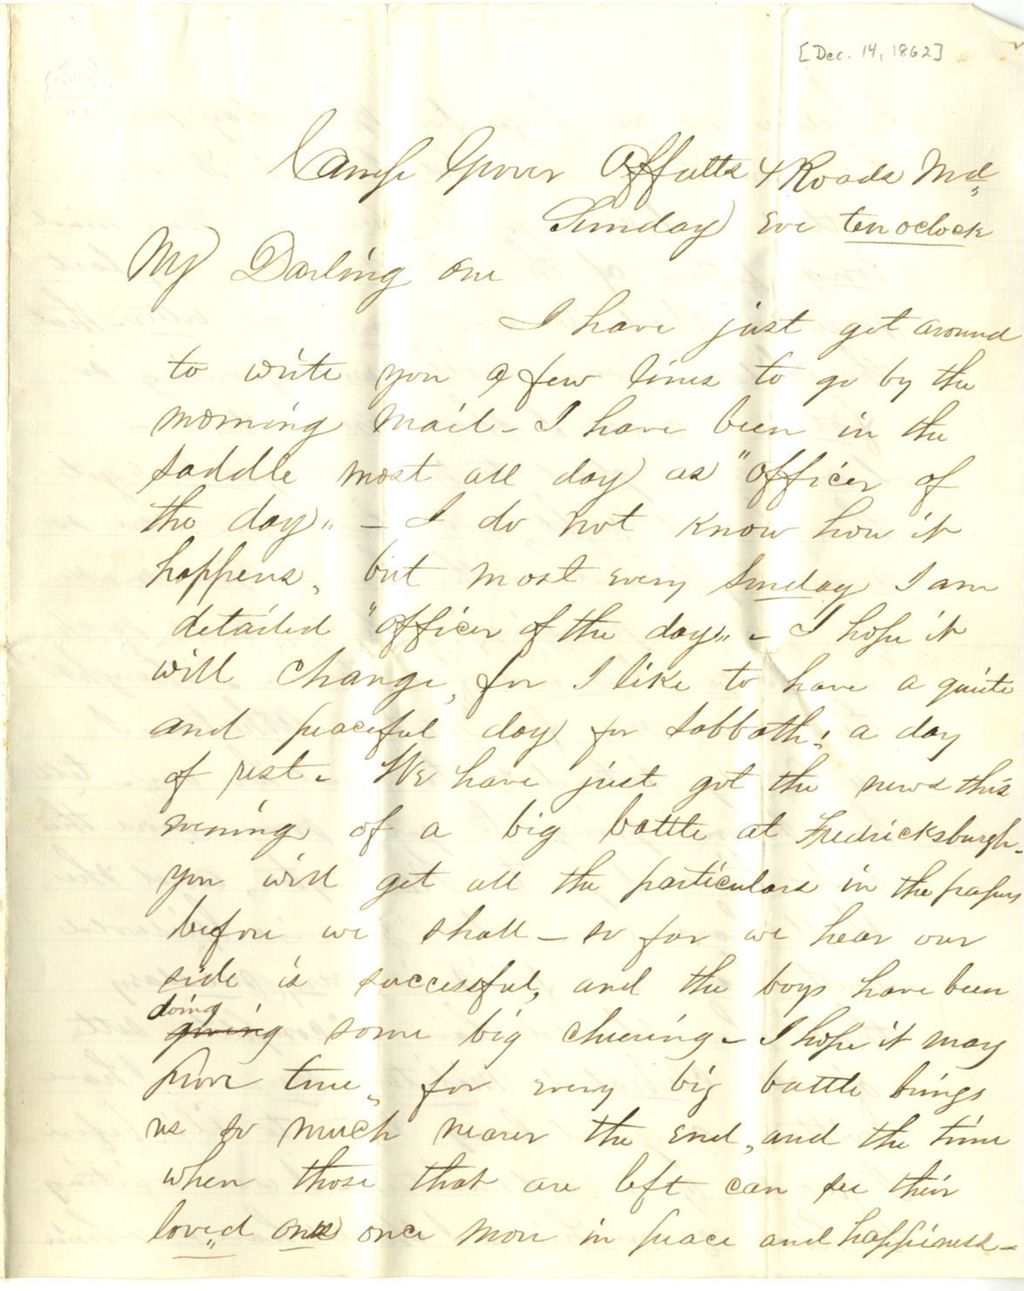 [Dec. 14, 1862]
Camp Grover Offutts 4 Roads Md"
Sunday Eve ten oclock
My Darling one
I have just got around
to write you a few lines to go by the
morning mail - I have been in the
saddle most all day as "officer of
the day" - I do not know how it
happens, but most every Sunday I am
detailed "officer of the day" - I hope it
will change, for I like to have a quite
and peaceful day for Sabbath; a day
of rest - We have just got the news this
evening of a big battle at Fredricksburgh -
you will get all the particulars in the papers
before we shall - so far we hear our
side is successful, and the boys have been
doing
giving some big cheering - I hope it may
prove true, for every big battle brings
us so much nearer the end, and the time
when those that are left can see their
loved ones once more in peace and happiness -